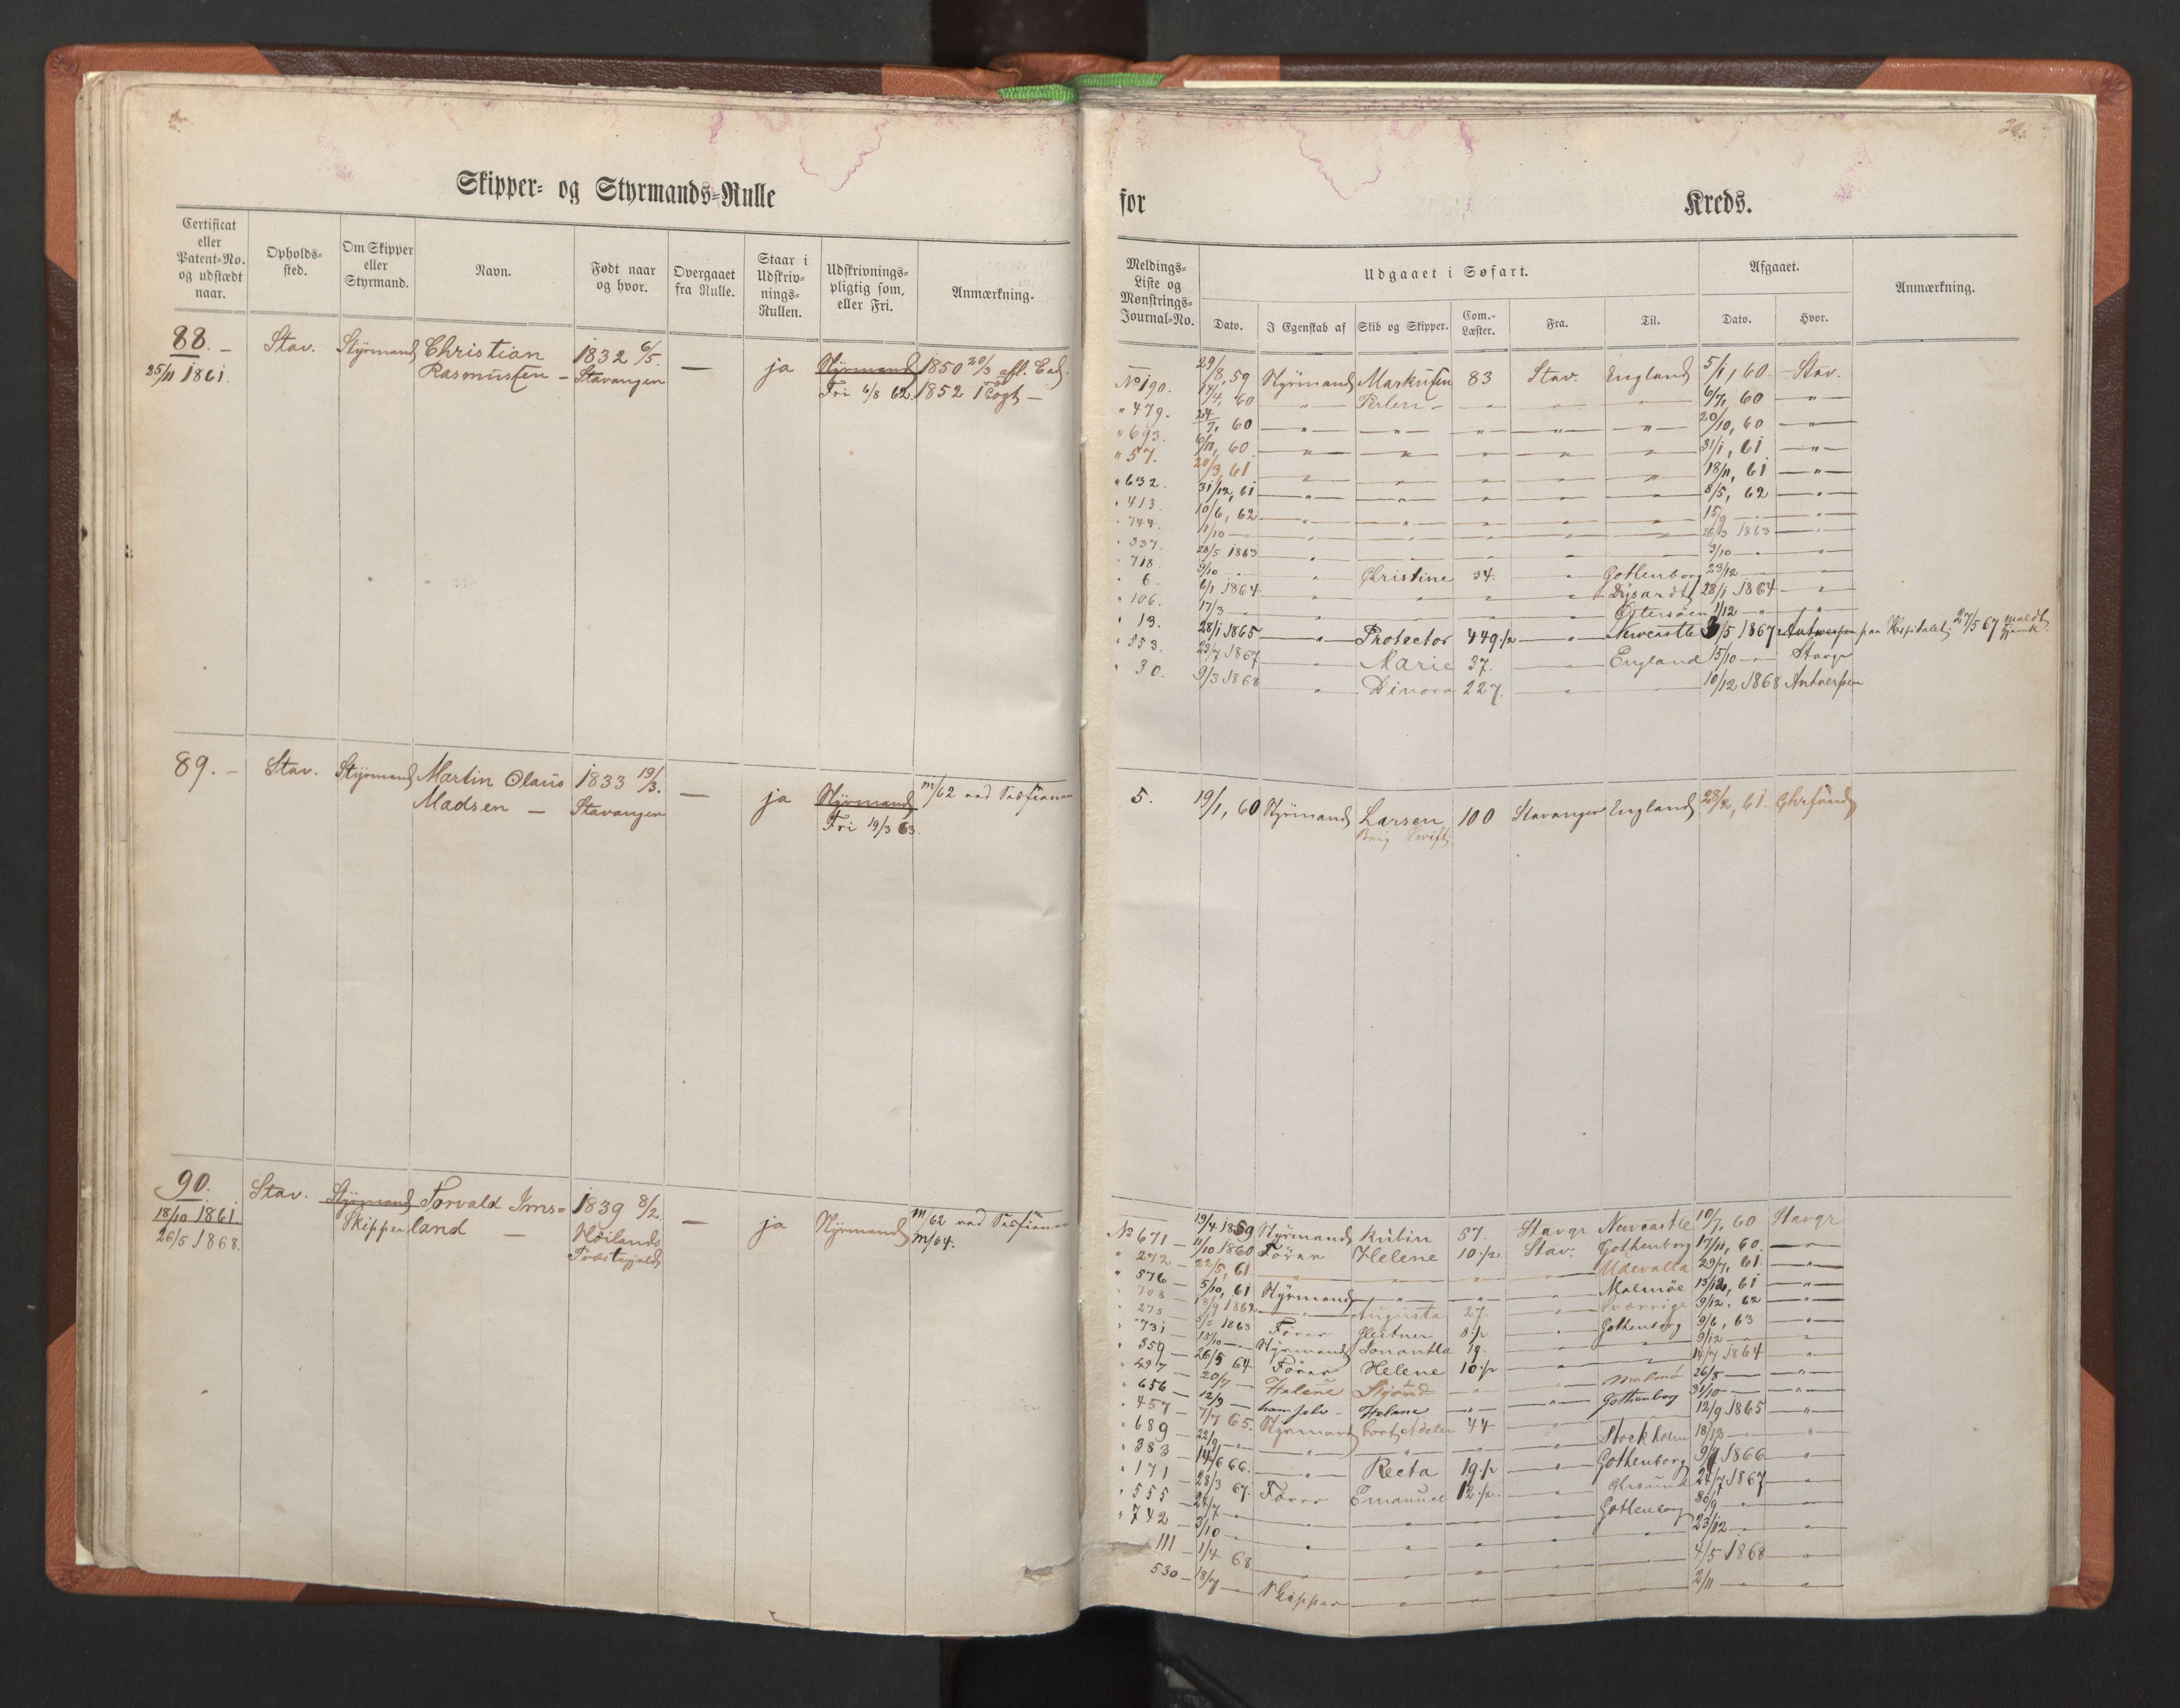 Skipper- og Styrmands-Rulle
Certificat eller Patent-No. og udstædt naar.
Opholds-sted.
Om Skipper eller Styrmand.
Navn.
Født naar og hvor.
Overgaaet fra Rulle.
Staar i Udskriv-nings-Rullen.
Udskrivnings-pligtig som, eller Fri.
Anmærkning.
88. – Stav. Styrmand Christian 1832 6/5. — ja Styrmand 1850 20/3 afl. Ed.
25/11 1861. Rasmussen – Stavanger Fri 6/8 62. 1852 Togt –
89. – Stav. Styrmand Martin Olaus 1833 19/3. — ja Styrmand m/62
Madsen – Stavanger Fri 19/3 63.
90. Stav. Styrmand Torvald Ims= 1839 8/2. — ja Styrmand m/62
18/10 1861. Skipper land – Høilands m/64.
26/5 1868. Præstegjeld
for Kreds.
Meldings-Liste og Mønstrings-Journal-No.
Udgaaet i Søfart.
Afgaaet.
Anmærkning.
Dato.
I Egenskab af
Skib og Skipper.
Com.-Læster.
Fra.
Til.
Dato.
Hvor.
— 29/8, 59 Styrmand Markussen 83 Stav. England 5/1, 60 Stav.
No 190. 14/4, 60 — " — Perlen – " " " 6/7, 60 "
" 479. 24/7, 60 " " " " " 20/10, 60 "
" 693. 6/11, 60 " " " " " 31/1, 61 "
" 57. 20/3, 61 " " " " " 18/11, 61 "
" 632. 31/12, 61 " " " " " 8/5, 62 "
" 413. 10/6, 62 " " " " " 15/9 — "
" 744. 11/10 — " " " " " 26/3 1863 "
" 337. 28/5 1863 " " " " " 3/10 — "
" 718. 9/10 — " Christine 34. " Gothenborg 23/12 — "
" 6. 6/1 1864 " " " " Dysardt 28/1 1864 "
" 106. 17/3 — " " " " Østersøen 1/12 — "
" 13. 28/1 1865 " Protector 449 1/2 " Newcastle 3/5 1867 Antwerpen paa Hospitalet; 27/5 67 meldt hjemk.
" 553. 23/7 1867 " Marie 37. " England 15/10 — Stavgr
" 30. 9/3 1868 " Dinora 227. " — 10/12 1868 Antwerpen
5. 19/1, 60 Styrmand Larsen 100 Stavanger England 61. Chrsand
Brig Swift
19/4 1859 Styrmand Rubin 57. Stavgr Newcastle 10/7, 60 Stavgr
No 671 — 11/10 1860 Förer Helene 10 1/2 Stav: Gothenborg 17/11, 60. "
" 272 — 22/5, 61. " " " " Udevalla 29/7, 61. "
" 576 — 5/10, 61 Styrmand " " " Malmöe 13/12, 61 "
" 708 — 18/9 1862 " Augusta 27. " Sverrige 9/12, 62 "
" 275 — 5/5 1863 Förer 8 1/2 " Gothenborg 9/6, 63 "
" 731 — 15/10 — Styrmand 19. " " 9/12 — "
" 359 — 26/5 64. Förer Helene 10 1/2 " " 14/7 1864 "
" 497 — 20/7 — Helene Styrmd " " Malmö 26/8 — "
" 656 — 12/9 — ham selv – Helene " " Gothenborg 31/10 — "
" 457 — 7/7 65. Styrmand Cort Adeler 44 " 12/9 1865 "
" 689 — 22/9 — " " " " Stockholm 18/12 — "
" 383 — 14/6 66. " Recta 19 1/2 " Gothenborg 1866 "
" 171 — 28/3 67. Förer Emanuel 12 1/2. " Chrsund 24/7 1867 "
" 555 — 24/7 — " " " " Gothenborg 30/9 — "
" 742 — 3/10 — " " " " " 23/12 — "
111 — 1/4 68. " " " " " 4/5 1868 "
530 — 13/7 — Skipper " " " " 2/11 — "